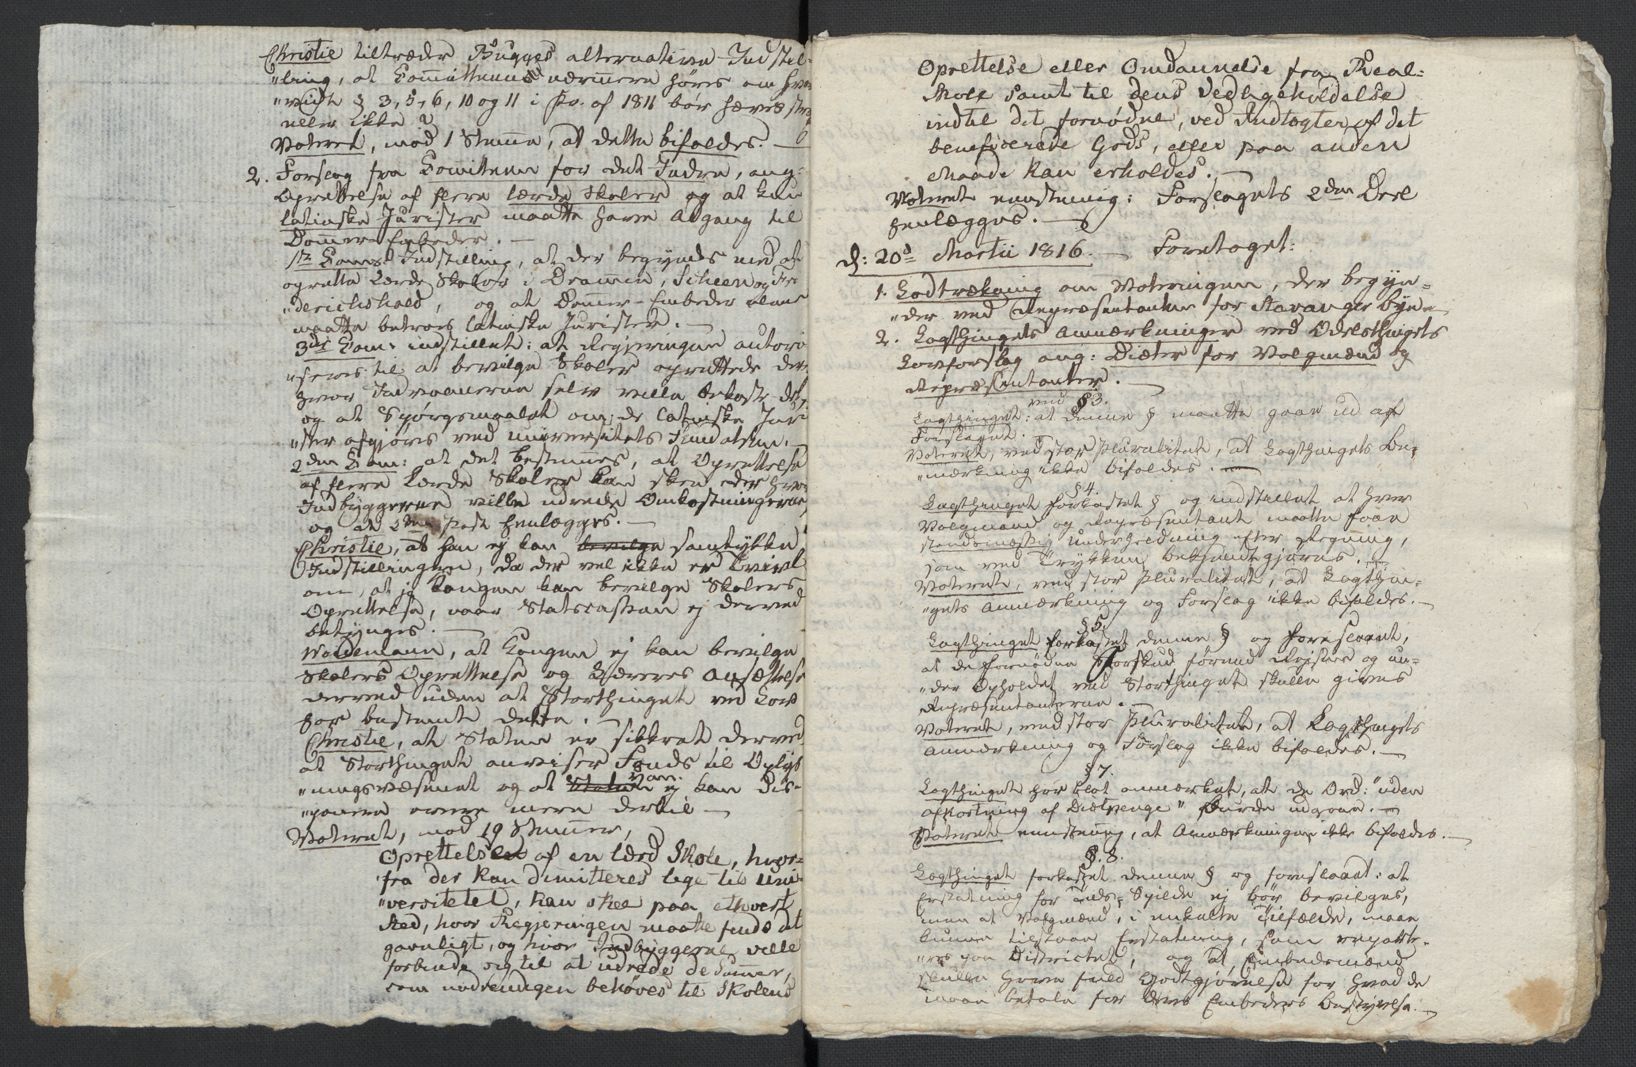 Christie tiltræder Bugges alternative Indstil-
"ling, at Committeens nærmere høres om hvor-
"vidt § 3, 5, 6, 10 og 11 i Fo. af 1811 bør hæves strax
eller ikke?
Voteret, mod 1 Stemme, at dette bifaldes. —
2. Forslag fra Committeen for det Indre, ang:
Oprettelse af flere lærde Skoler og at kun
latinske Jurister maatte have Adgang til
Dommer Embeder. —
1ste Comes Indstilling, at der begyndes med at
oprette lærde Skoler i Drammen, Scheen og Fre
"derichshald, og at Dommer-Embeder alene
maatte betroes latinske Jurister. —
3die Com: indstillet: at Regjeringen autori
"seres til at bevilge Skoler oprettede der
hvor Indvaanerne selv ville bekoste det,
og at Spørgsmaalet om de latinske Juri
"ster afgjøres ved Universitets Fundatsen. —
2den Com: at det bestemmes, at Oprettelse
af flere lærde Skoler kan skee der hvor
Indbyggerne ville udrede Omkostningerne,
og at 2den Post henlægges. —
Christie, at han ej kan bevilge samtykke
Indstillingen, da der vel ikke er Tvivl
om, at jo Kongen kan bevilge Skolers
Oprettelse, naar Statscassen ej derved
betynges. —
Woldemann, at Kongen ej kan bevilge
Skolers Oprettelse og Læreres Ansættelse
derved uden at Storthinget ved Lov
har bestemt dette. —
Christie, at Staten er sikkret derved
at Storthinget anviser Fonds til Oplys
"ningsvæsenet og at Staten man ej kan dis-
"ponere over mere dertil —
Voteret, mod 19 Stemmer,
Oprettelse af en lærd Skole, hvor-
fra der kan dimitteres lige til Uni-
"versitetet, kan skee paa ethvert
Sted, hvor Regjeringen maatte finde det
gavnligt, og hvor Indbyggerne ville
forbinde sig til at udrede de Summer,
som nødvendigen behøves til Skolens
Oprettelse eller Omdannelse fra Real-
Skole samt til dens Vedligeholdelse
indtil det fornødne, ved Indtægter af det
beneficerede Gods, eller paa anden
Maade kan erholdes. —
Voteret eenstemmig: Forslagets 2den Deel
henlægges. —
d: 20de Martii 1816. — Foretaget:
1. Lodtrækning om Voteringen, der begyn-
"der ved Repræsentanten for Stavanger Bye. —
2. Lagthingets Anmærkninger ved Odelsthingets
Lovforslag ang: Diæter for Valgmænd og
Repræsentanter. —
ved § 3.
Lagthinget: at denne § maatte gaae ud af
Forslaget.
Voteret, ved stor Pluralitet, at Lagthingets An-
"mærkning ikke bifaldes. —
§ 4.
Lagthinget forkastet § og indstillet at hver
Valgmand og Repræsentant maatte faae
standsmæssig Underholdning efter Regning,
som ved Trykken bekjendtgjøres. —
Voteret, ved stor Pluralitet, at Lagthin-
"gets Anmærkning og Forslag ikke bifaldes. —
§ 5.
Lagthinget forkastet denne § og foreslaaet,
at de fornødne Forskud førend Reisen og un-
"der Opholdet ved Storthinget skulle gives
Repræsentanterne. —
Voteret, ved stor Pluralitet, at Lagthingets
Anmærkning og Forslag ikke bifaldes. —
§ 7.
Lagthinget har blot anmærket, at de Ord: "uden
Afkortning af Diætpenge" burde udgaae. —
Voteret eenstemmig, at Anmærkningen ikke bifaldes. —
§. 8.
Lagthinget forkastet denne § og foreslaaet: at
Erstatning for Tids-Spilde ej bør bevilges,
men at Valgmænd, i enkelte Tilfælde, maae
kunne tilstaaes Erstatning, som repartе-
"res paa Districtet, og at Embedsmænd
skulle have fuld Godtgjørelse for hvad de
maae betale for deres Embeders Bestyrelse. —